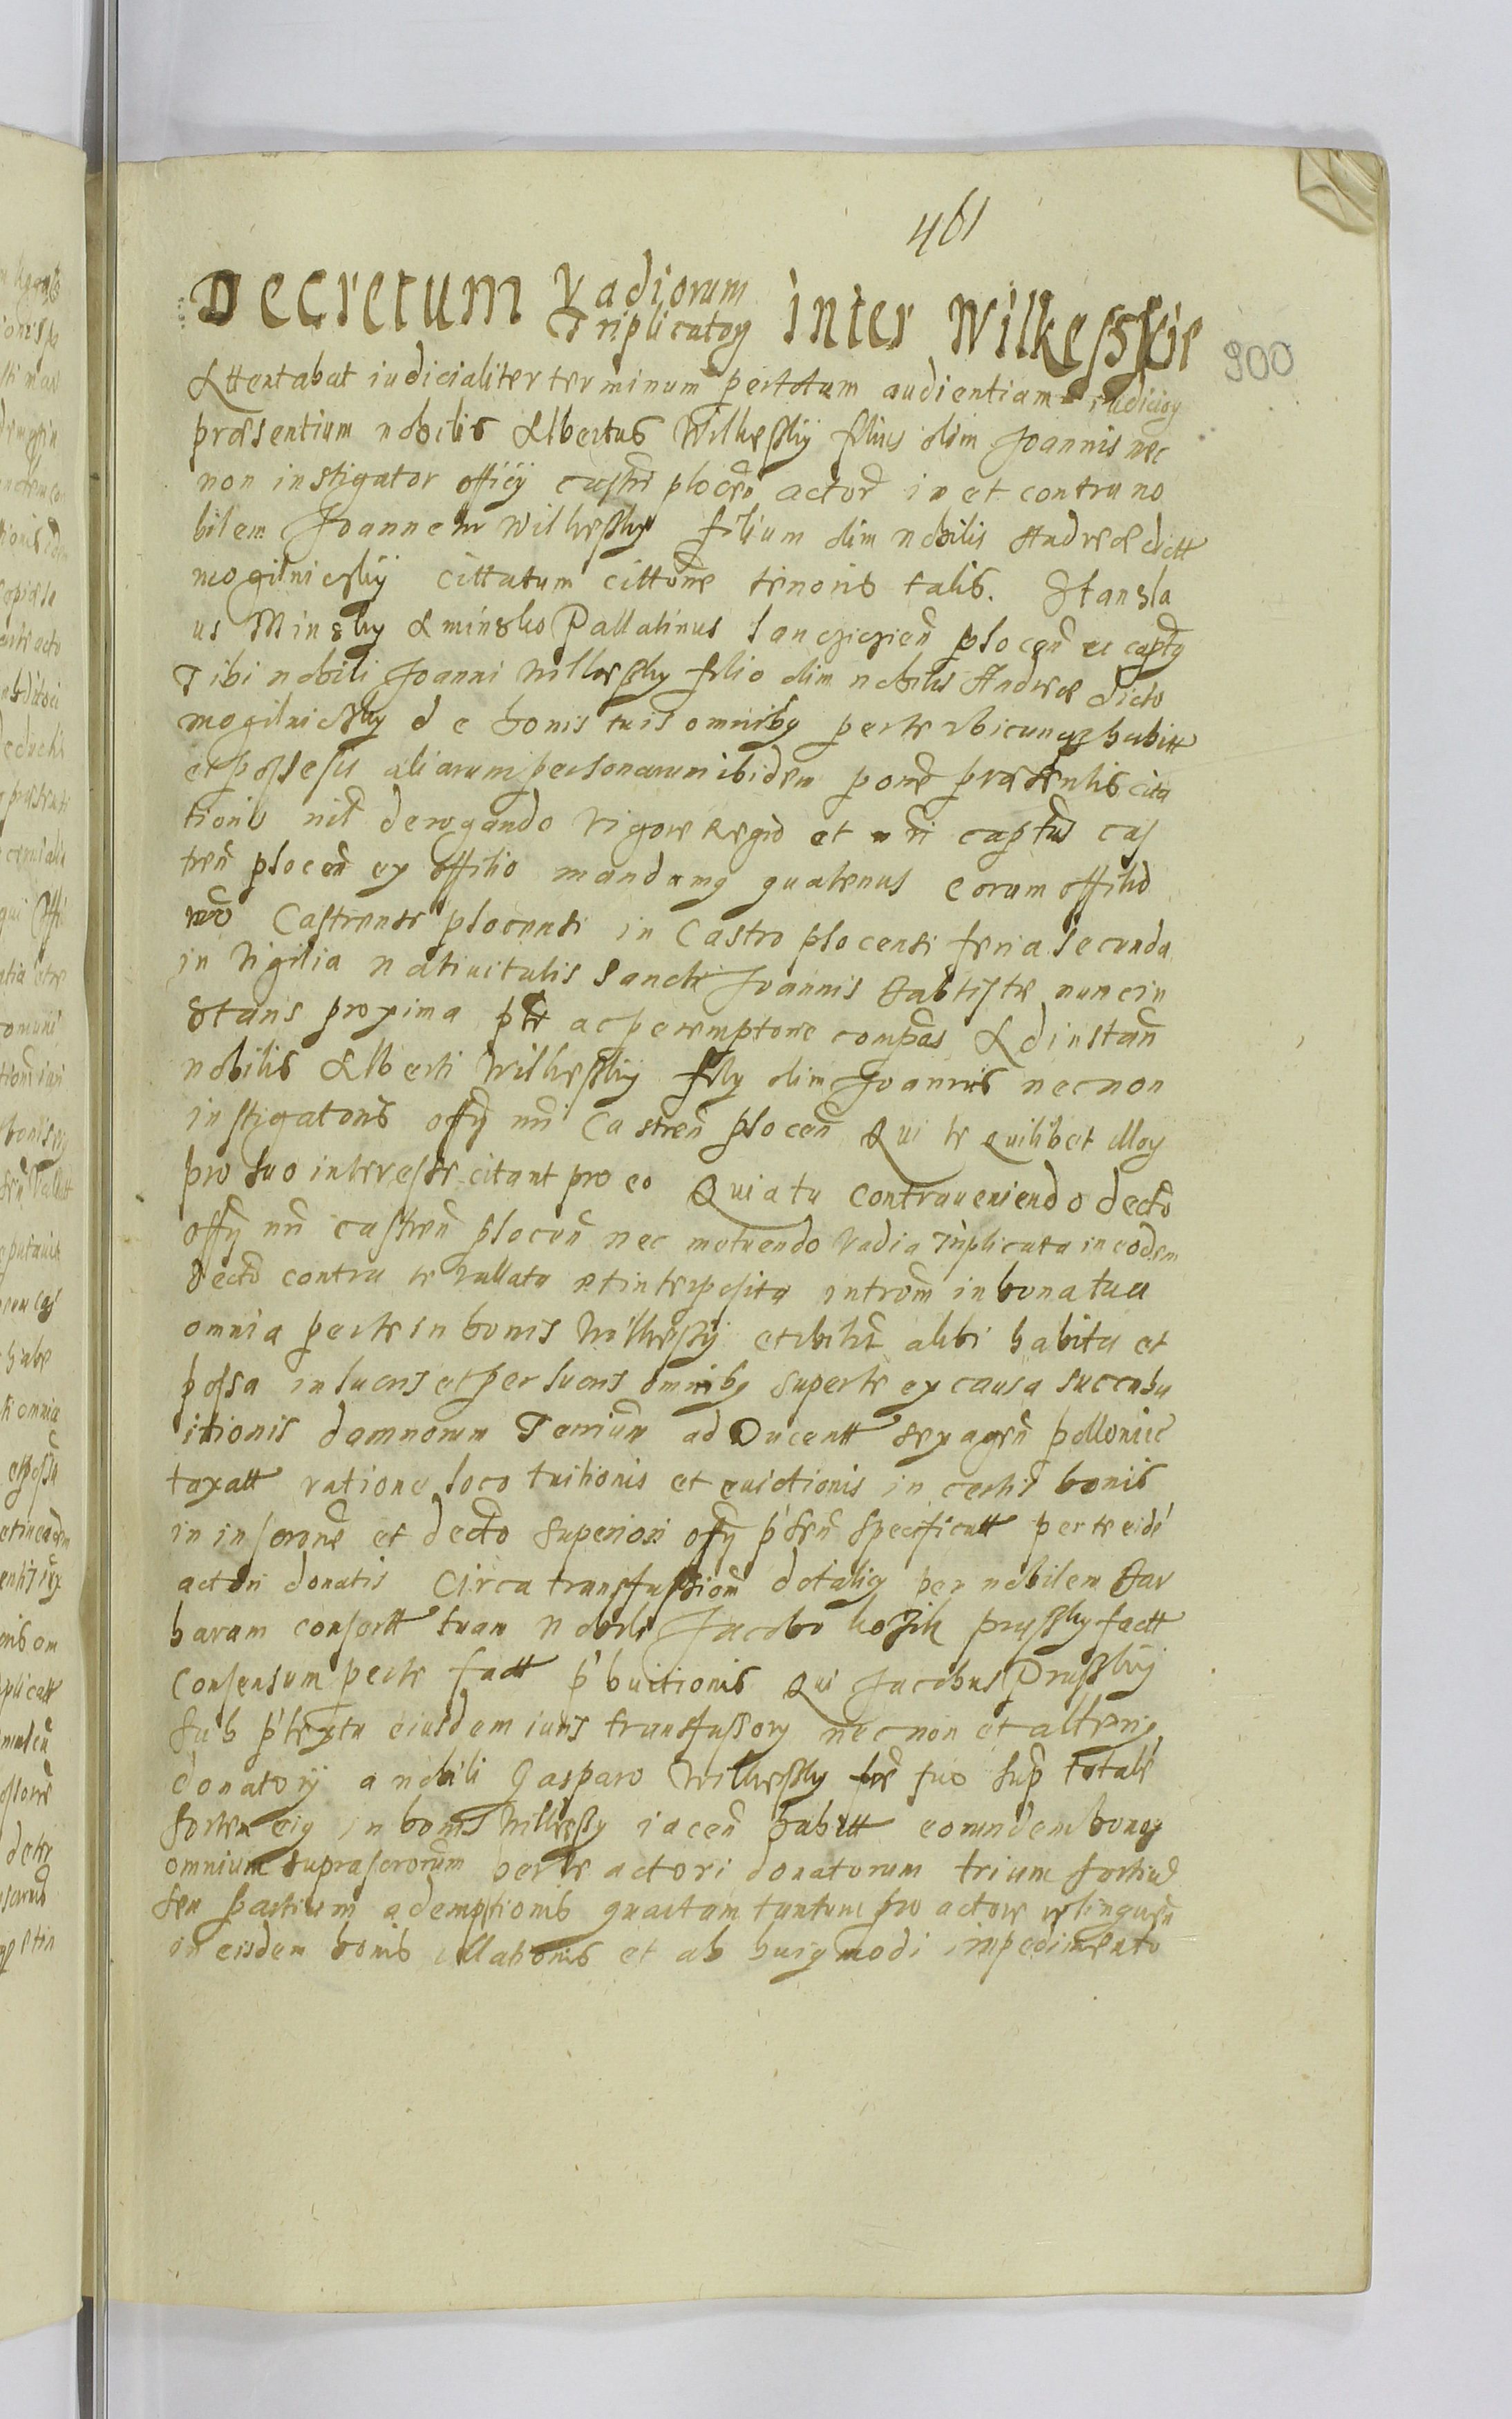 461
Decretum Vadiorum Triplicatoꝝ inter Wilkesskie
900
Attentabat iudicialiter terminum per totam audientiam iudicioꝝ
præsentium nobilis Albertus Wilkessky filius olim Joannis nec
non instigator officij castrē plocen̄ actor in et contra no
bilem Joannem Wilkessky filium olim nobilis Andreæ dictt
mogilniczkij cittatum cittōne tenoris talis. Stanisla
us Minsky A minsko Pallatinus Lancziczien̄ plocen̄ cc capt
Tibi nobili Joanni Wilkessky filio olim nobilis Andreæ dicto
mogilniczky de bonis tuis omnibꝯ per te vbicunqꝫ habitt
et possessis aliarum personarum ibidem pone præsentis cita
tionis nil derogando vigore Regio et nr̄i captus cas
tren̄ plocen̄ ex offitio mandamꝯ quatenus coram offitio
nr̄o Castrense plocensi in Castro plocensi feria secunda
in Vigilia natiuitatis Sancti Joannis Babtiste nunc in
stans proxima pte ac peremptorie compas Ad instan̄
nobilis Alberti Wilkessky filij olim Joannis necnon
instigatoris offij nr̄i Castren̄ plocen̄ Qui te quilibet illoꝝ
pro suo interesse citant pro eo Quia tu contraueniendo decto
offij nr̄i castren̄ plocen̄ nec metuendo vadia triplicata in eodem
decto contra te vallata et interposita introm̄ in bona tua
omnia per te in bonis Wilkessky et vbilibet alibi habita et
possa in lucris et per lucris omnibꝯ super te ex causa succubu
itionis damnorum Terrium ad Ducentt sexagen̄ pollonice
taxatt ratione loco tuitionis et euictionis in certis bonis
in inscrone et decto superiori offij p̄sen̄ specificatt per te eidē
actori donatis Circa transfussionē dotaliꝯ per nobilem Bar
baram consortt tuam nobili Jacobo kozik prussky factt
Consensum per te factt p̄buitionis Qui Jacobus Prussky
sub p̄textu eiusdem iuris transfussorij necnon et alterius
donatorij a nobili Gasparo Wilkessky fre suo sup totale
sortem eiꝯ in bonis Wilkessy iacen̄ habitt eorundem bonoꝝ
omnium suprascrorum per te actori donatorum trium sortiu
seu partium ademptionis quartam tantum pro actore relinquen̄
in eisdem bonis illationis et ab huiꝯmodi impedimento